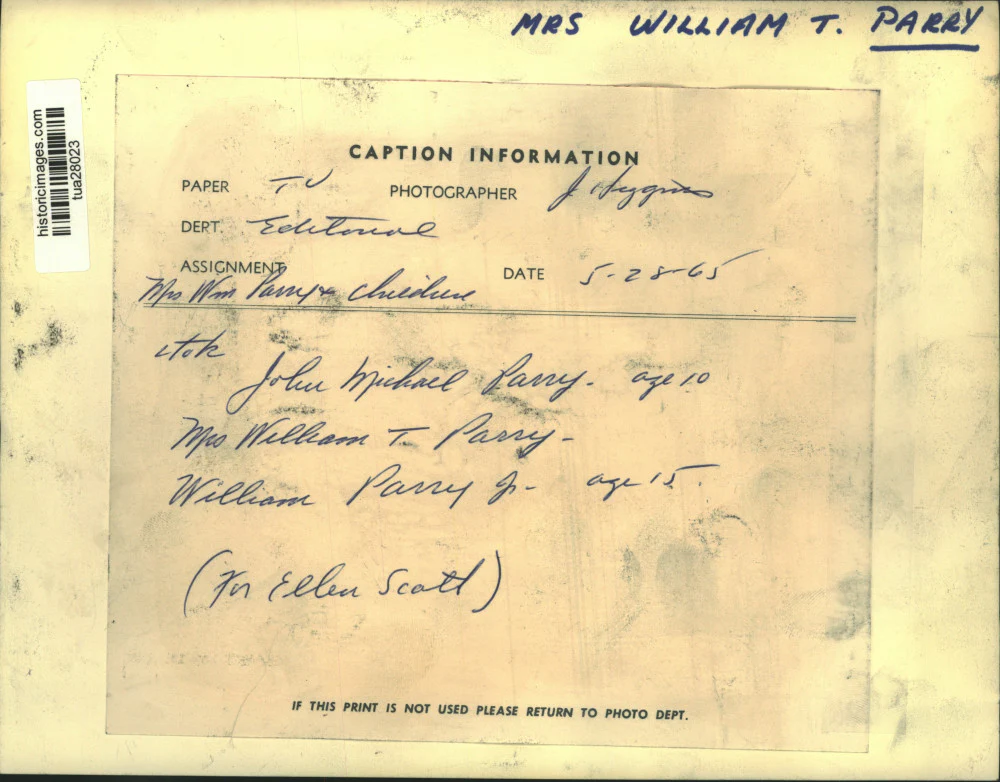 MRS WILLIAM T. PARRY
historicimages.com
tua28023
CAPTION INFORMATION
PAPER TU PHOTOGRAPHER J Higgins
DEPT. Editorial
ASSIGNMENT DATE 5-28-65
Mrs Wm Parry & children
John Michael Parry. age 10
Mrs William T. Parry-
William Parry Jr- age 15.
(For Ellen Scott)
IF THIS PRINT IS NOT USED PLEASE RETURN TO PHOTO DEPT.